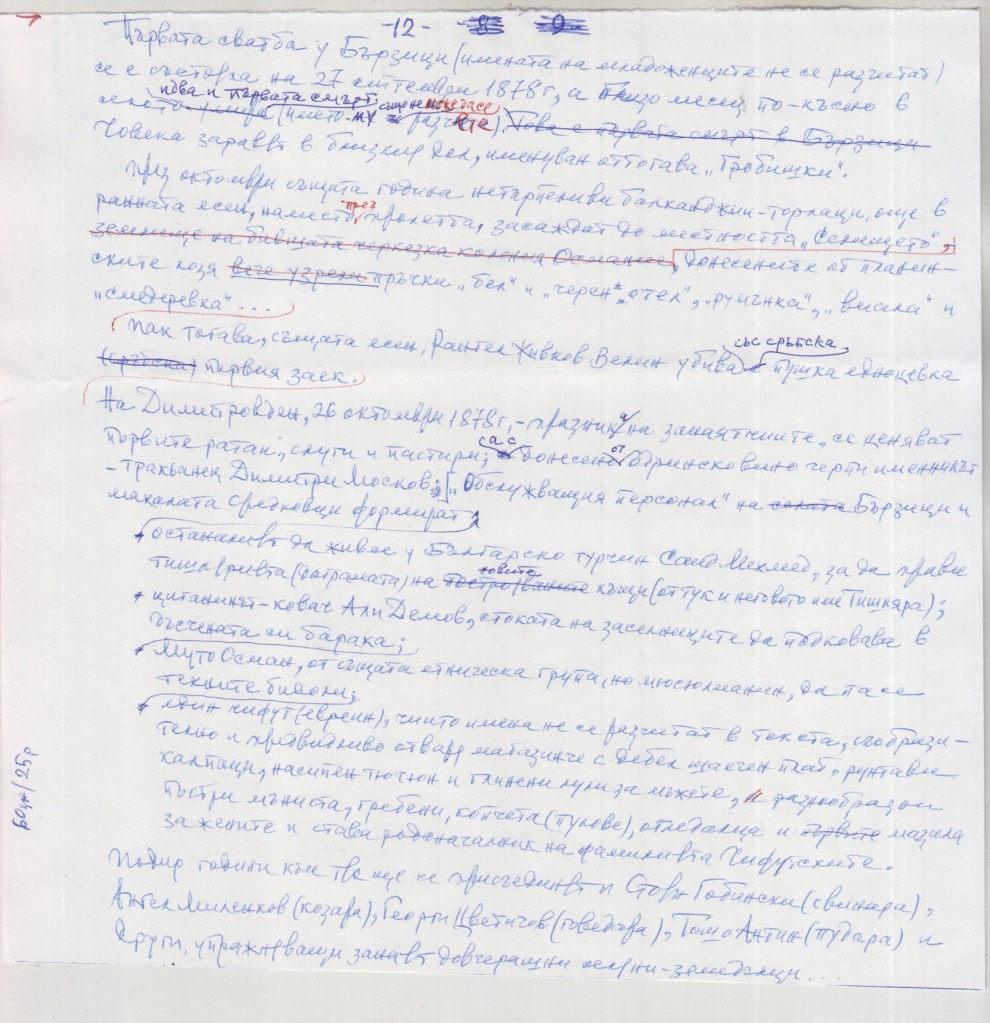 -12- 8 9
Първата сватба у Бързици (имената на младоженците не се разчитат)
се е състояла на 27 септември 1878 г., а месец по-късно в
това и първата смърт.
(името му не се разчита). Това е първата смърт в Бързици
Човека заравят в близкия дол, именуван оттогава „Гробишки“.
През октомври същата година нетърпеливи балканджии-торлаци, още в
ранната есен, наместо през пролетта, засаждат до местността „Селището“,
землище на бившата черкезка колония Османие, донесените от планин-
ските лозя вече узрели пръчки „бел“ и „черен“ отел“, „руичка“, „виала“ и
„смедеревка“...
Пак тогава, същата есен, Рангел Живков Велин убива със сръбска
(сръбска) пушка едноцевка
първия заек.
На Димитровден, 26 октомври 1878 г., – празника на занаятчиите, се ценяват
първите ратаи, слуги и пастири; с донесено от Бринско вино черпи именникът
– тракианец Димитри Москов; „Обслужващия персонал“ на селата Бързици и
махалата Средковци формират:
останалият да живее у Българско турчин Саид Мехмед, за да прави
тишляривта (дограмата) на новите построяваните къщи (оттук и неговото име Тишляра);
циганинът-ковач Али Демов, стоката на заселниците да подковава в
дъсчената си барака;
Муто Осман, от същата етническа група, но мюсюлманин, да пасе
техните биволи;
един чифут (евреин), чиито имена не се разчитат в текста, съобрази-
телно и предвидливо отваря магазинче с дебел шаечен плат, рунтави
калпаци, насипен тютюн и глинени лули за мъжете, и разнообразни
пъстри мъниста, гребени, копчета (пулове), огледалца и първите мазила
за жените и става родоначалник на фамилията Чифутските.
Подир години към тях ще се присъединят и Стоян Гобински (свинаря),
Ангел Миленков (козаря), Георги Цветичов (говедаря), Тошо Антин (пъдаря) и
други, упражняващи занаят довчерашни овчари-земеделци...